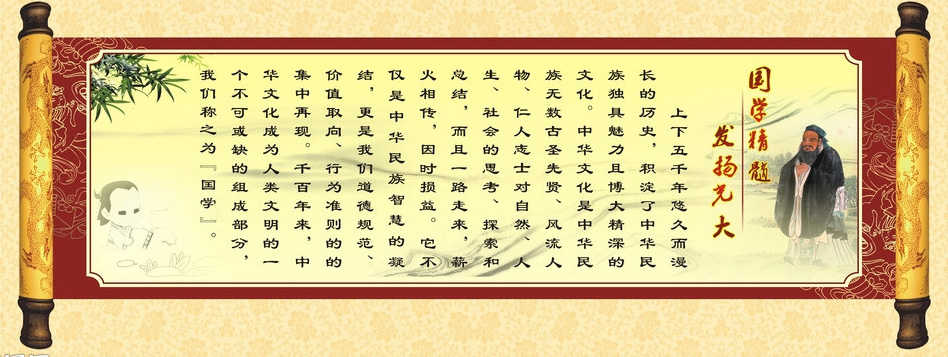 国学精髓
发扬光大
上下五千年悠久而漫
长的历史，积淀了中华民
族独具魅力且博大精深的
文化。中华文化是中华民
族无数古圣先贤、风流人
物、仁人志士对自然、人
生、社会的思考、探索和
总结，而且一路走来，薪
火相传，因时损益。它不
仅是中华民族智慧的凝
结，更是我们道德规范、
价值取向、行为准则的的
集中再现。千百年来，中
华文化成为人类文明的一
个不可或缺的组成部分，
我们称之为『国学』。